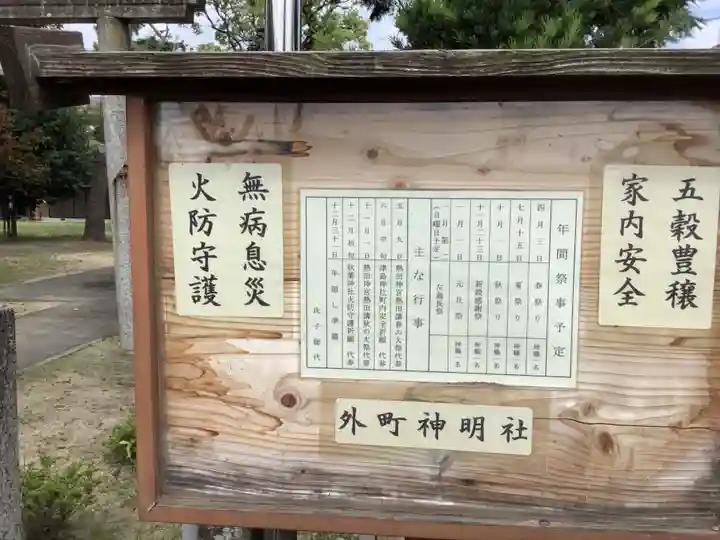 五穀豊穣
家内安全
年間祭事予定
四月三日 春祭り 神職一名
七月十五日 夏祭り 神職一名
十月一日 秋祭り 神職一名
十一月二十三日 新穀感謝祭 神職一名
一月一日 元旦祭 神職一名
一月第
(日曜日予定) 左義長祭
主な行事
五月九日 熱田神宮熱田講春の大祭代参
六月中旬 津島神社町内安全祈願 代参
十一月一日 熱田神宮熱田講秋の大祭代参
十二月初旬 秋葉神社火防守護祈願 代参
十二月三十一日 年越し準備
氏子総代
無病息災
火防守護
外町神明社